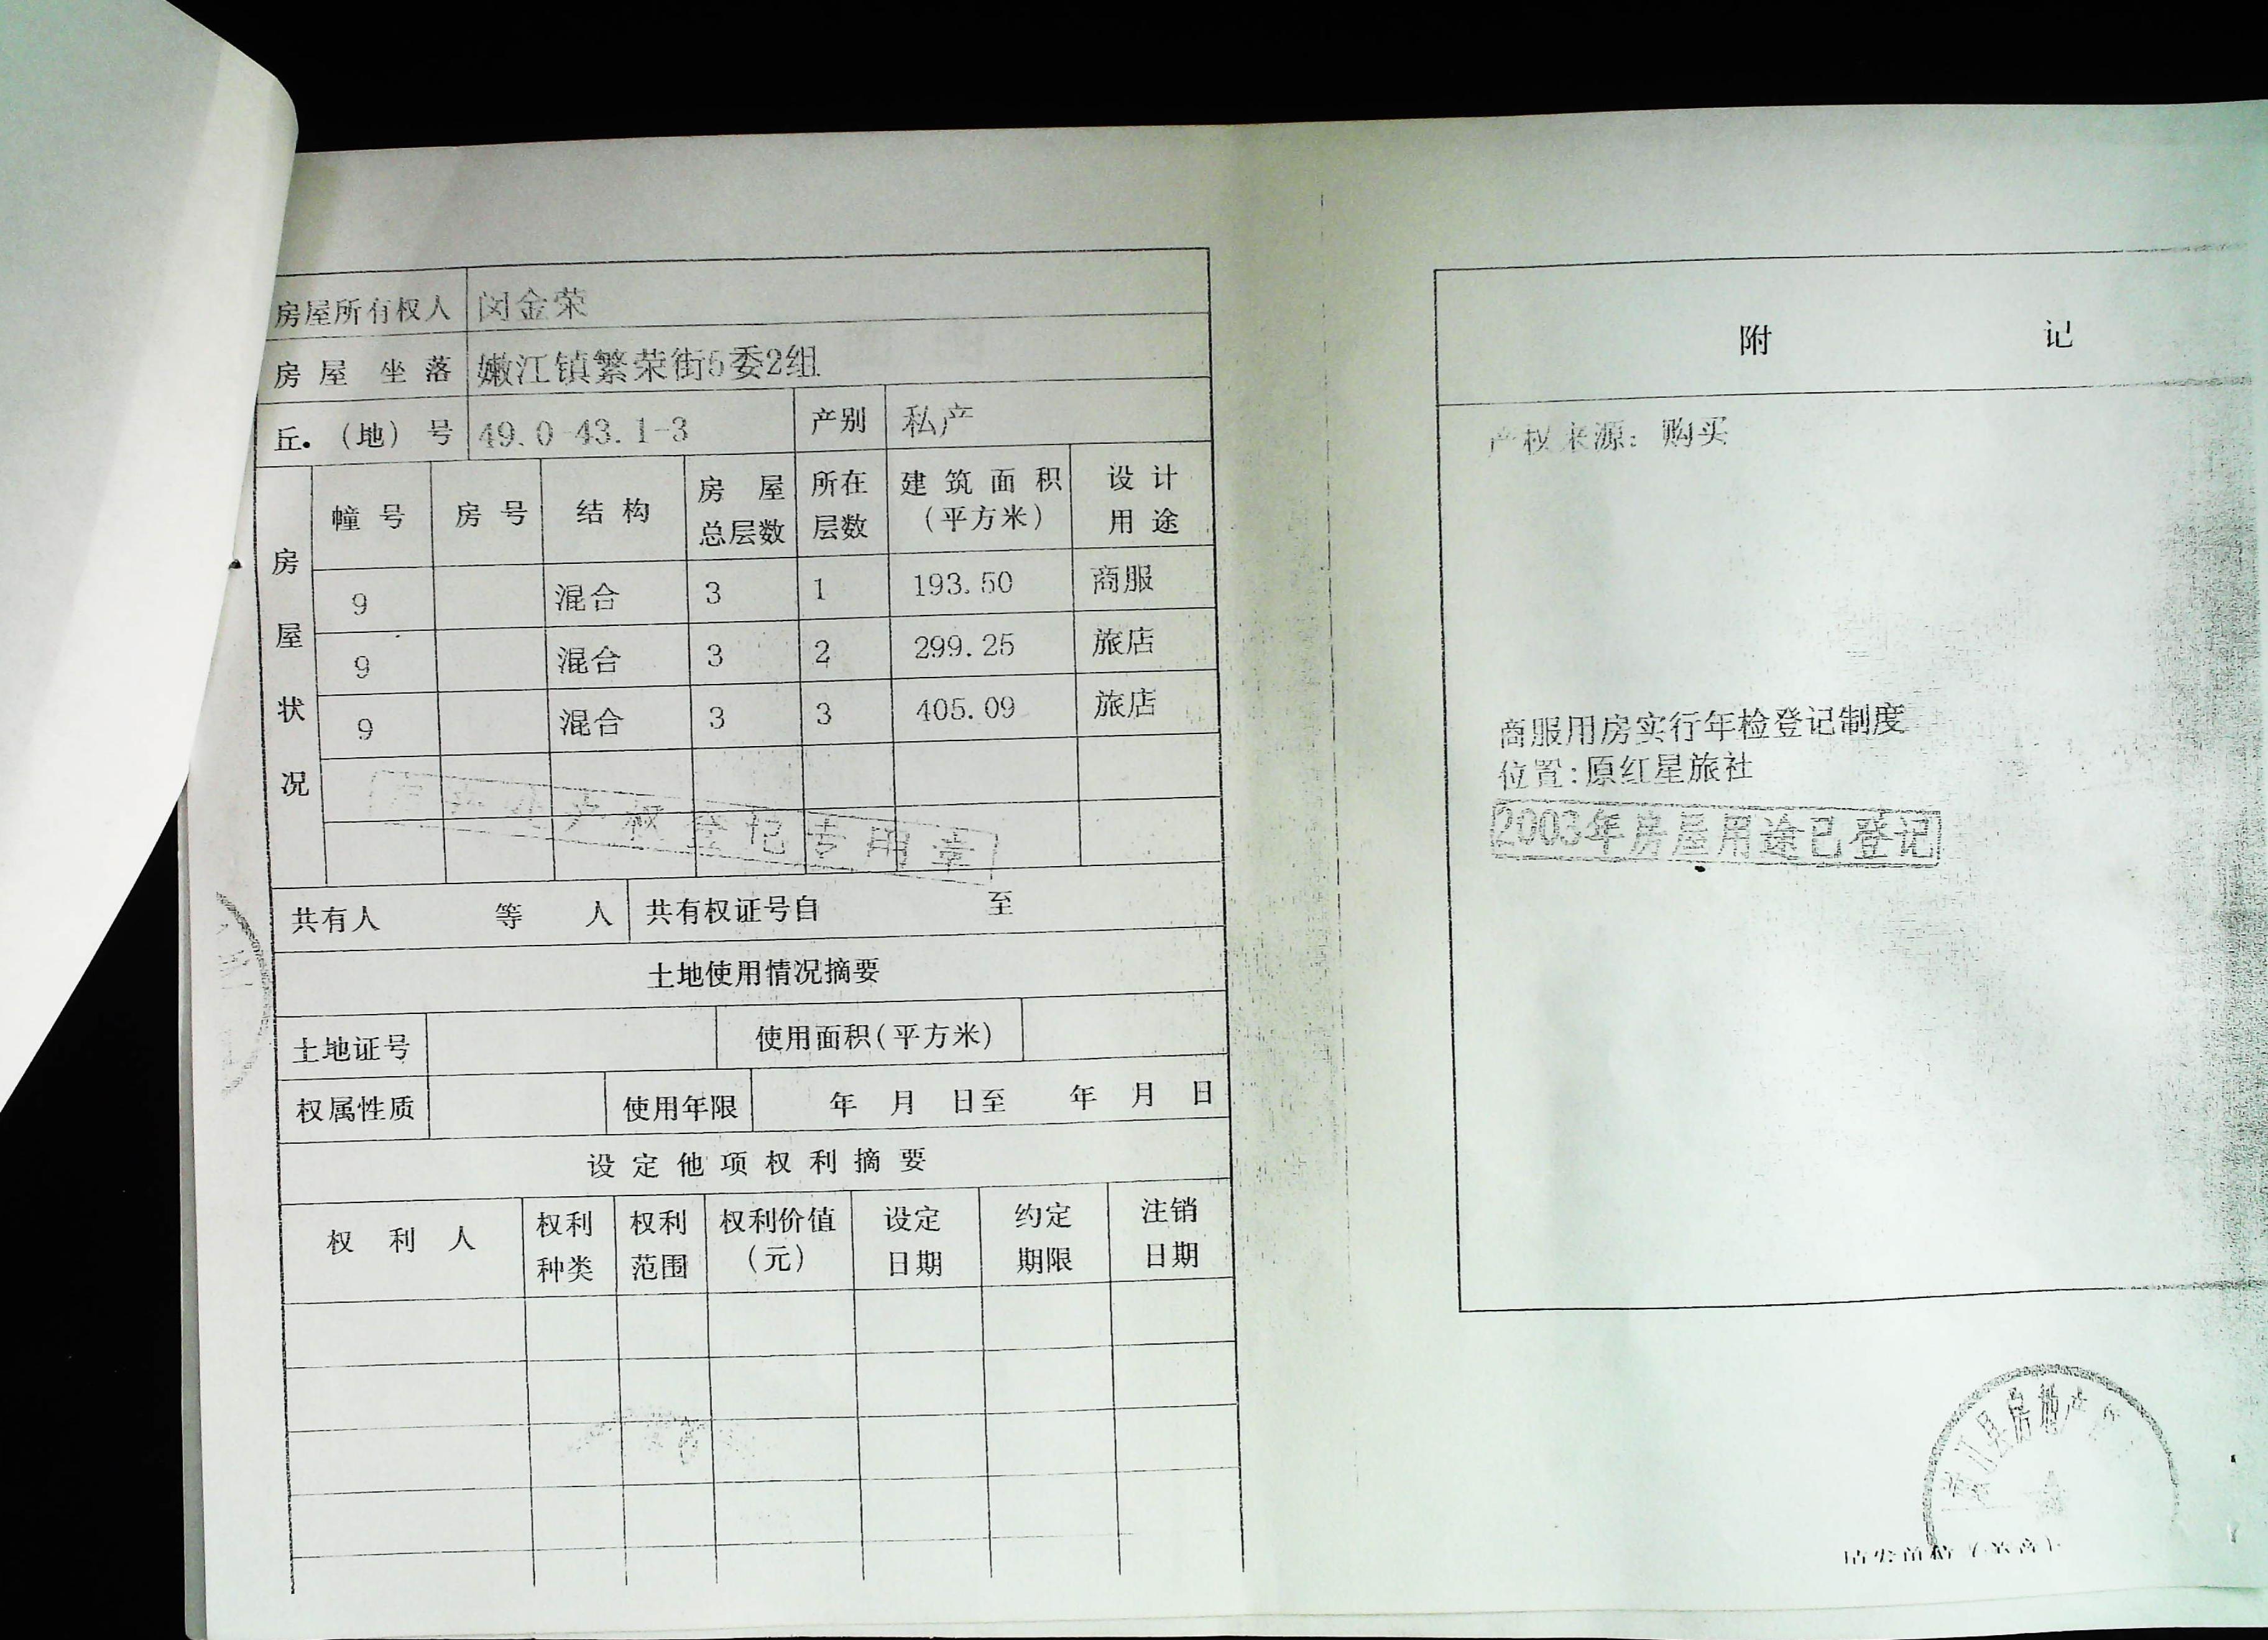 房屋所有权人 闵金荣
房屋坐落 嫩江镇繁荣街5委2组
丘.(地)号 49.0-43.1-3 产别 私产
房屋状况
幢号 房号 结构 房屋总层数 所在层数 建筑面积(平方米) 设计用途
9 混合 3 1 193.50 商服
9 混合 3 2 299.25 旅店
9 混合 3 3 405.09 旅店
产权登记专用章
共有人 等 人 共有权证号自 至
土地使用情况摘要
土地证号 使用面积(平方米)
权属性质 使用年限 年 月 日至 年 月 日
设定他项权利摘要
权利人 权利种类 权利范围 权利价值(元) 设定日期 约定期限 注销日期
附 记
产权来源: 购买
商服用房实行年检登记制度
位置:原红星旅社
2003年房屋用途已登记
江县房地产